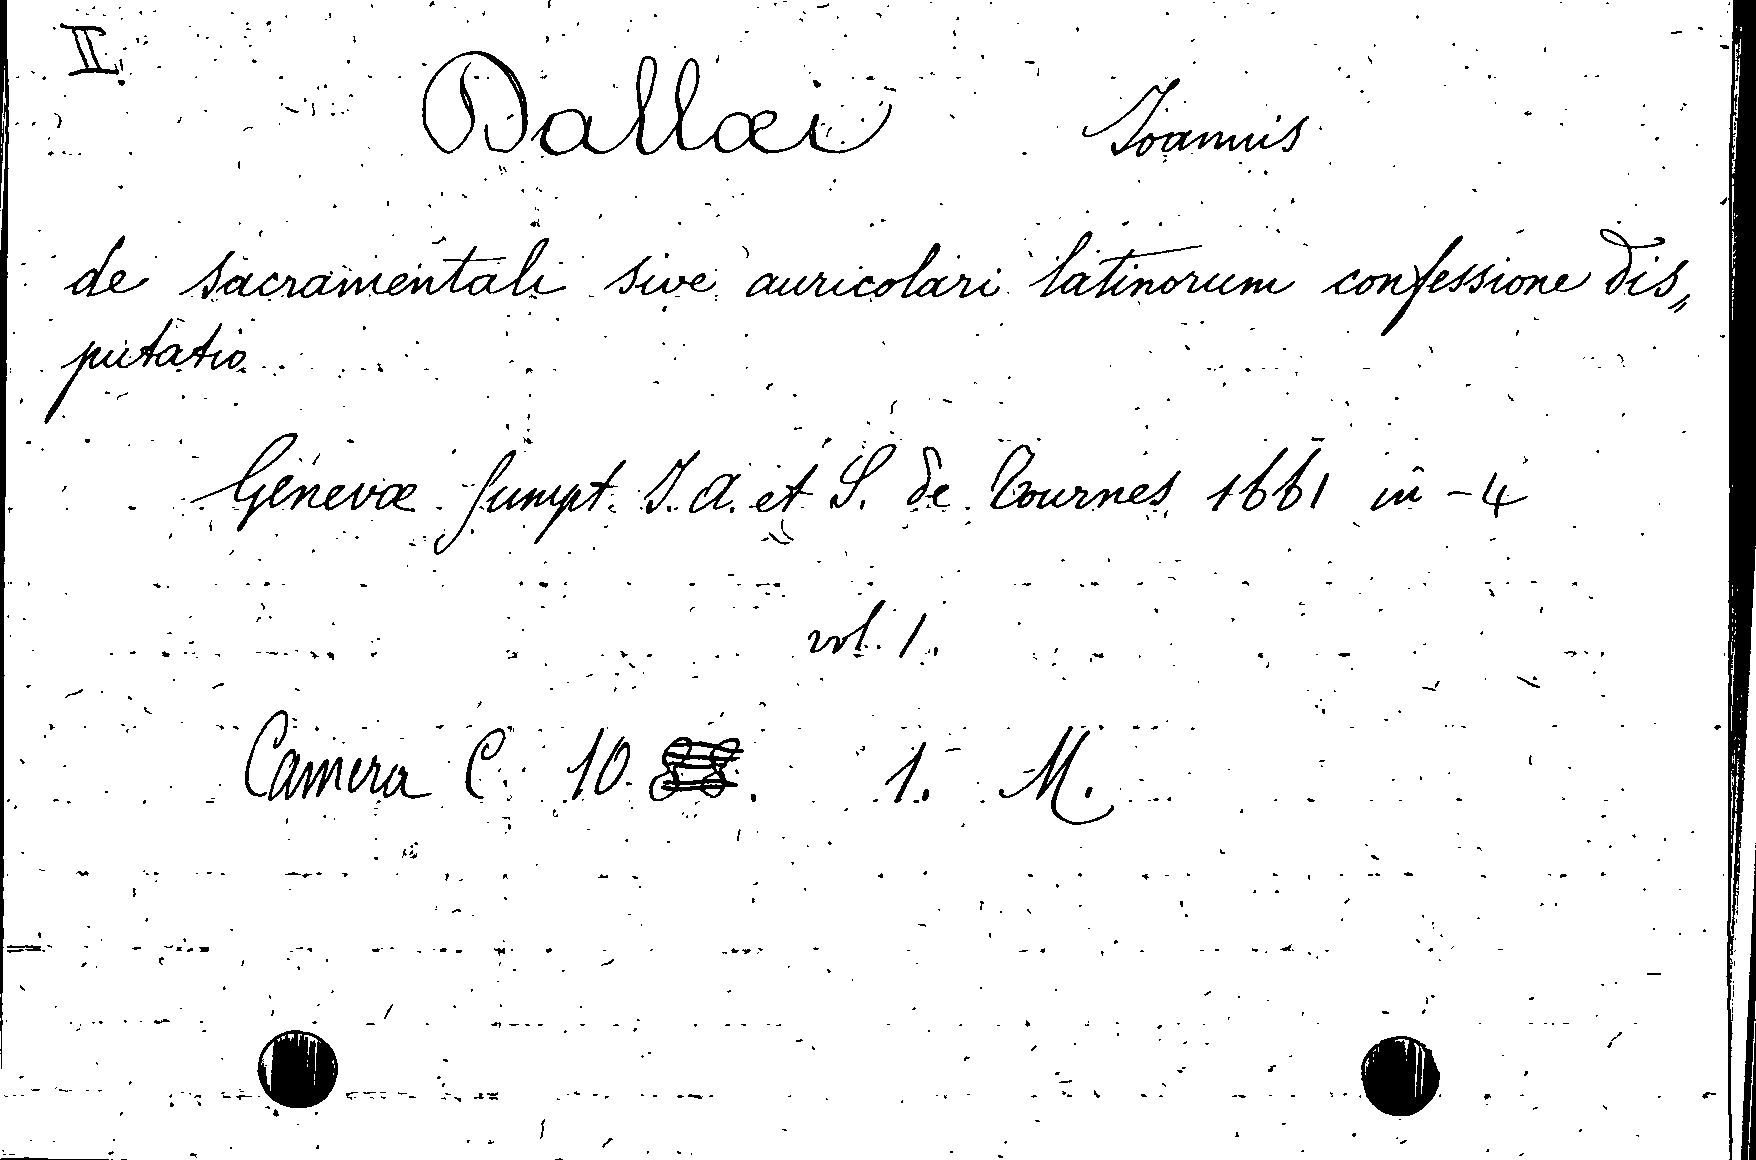 II.
Dallæi Joannis
de sacramentali sive auricolari latinorum confessione dis„
putatio
Genevæ Sumpt. J. A. et S. de Tournes 1661 in-4
vol. 1.
Camera C. 10. 1. M.